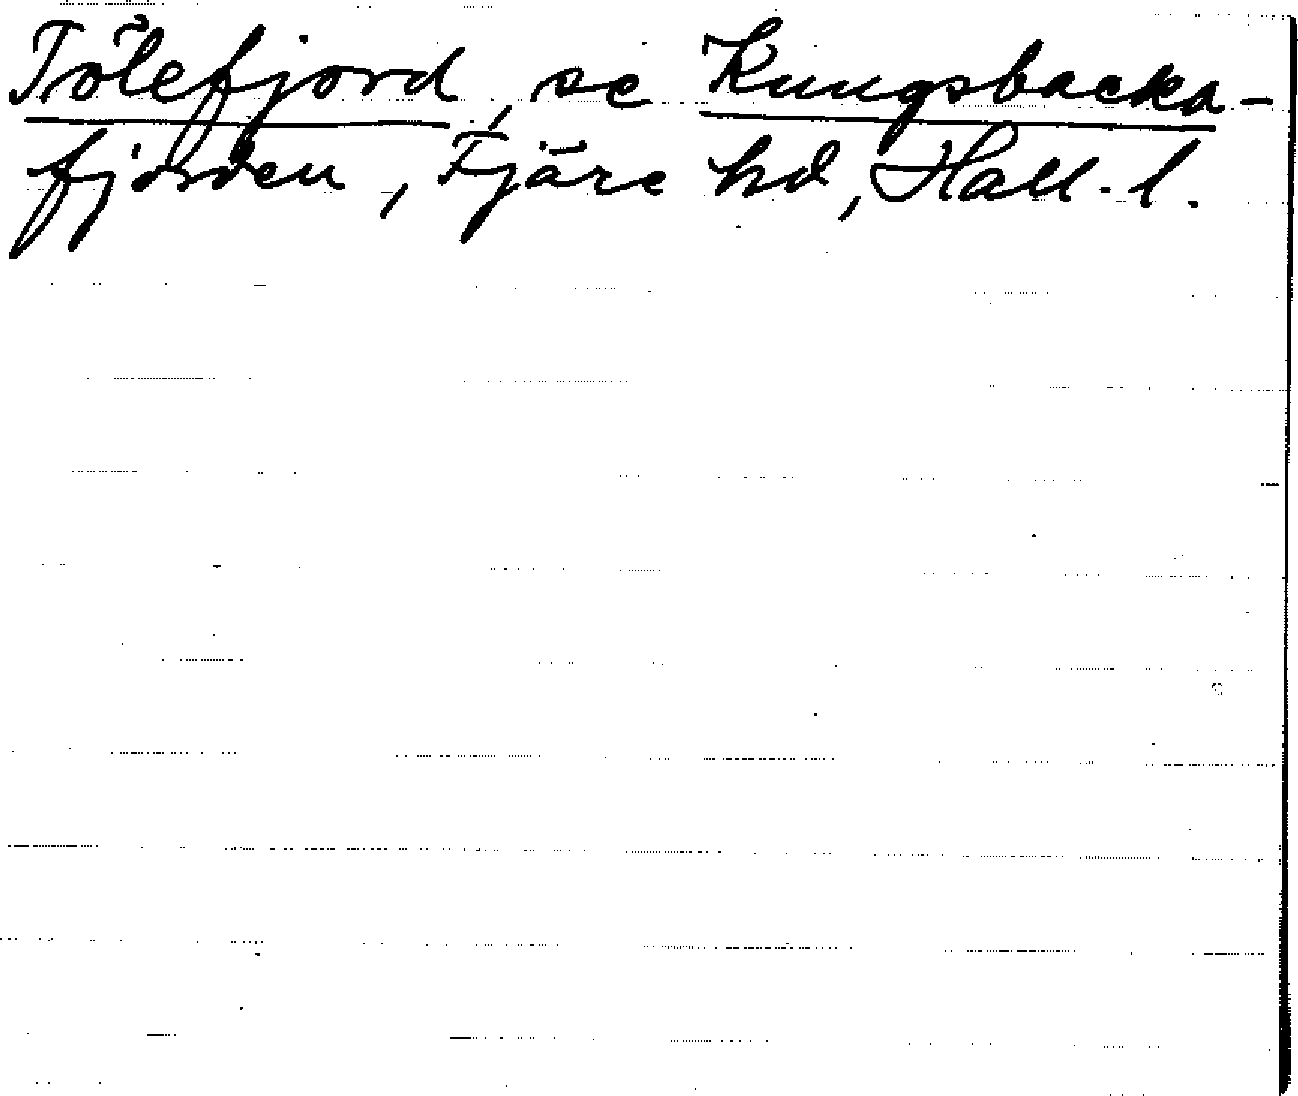 Tölefjord, se Kungsbacka-
fjorden, Fjäre hd, Hall. l.